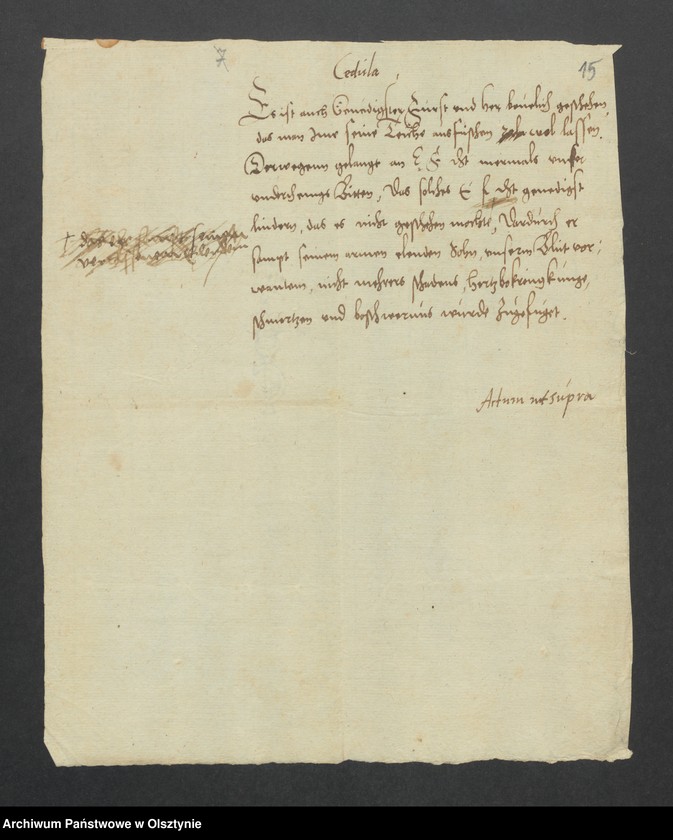 7
15
Cedula
Es ist auch Genedigster Furst und her beuelich geschehen,
das man Ime seine Teiche ausfischen wol lassen.
Derwegenn gelangt an E F dht mermals vnser
vnderthenigs Bitten, Das solches E f dht genedigst
lindern, das es nicht geschehen mochte, Dardurch er
sampt seinem armen elenden Sohn, vnserm Blut vor:
wantem, nicht mehrers schadens, hertzbekrenckunge,
schmertzen und beschwernus wurde Zugefuget.
Actum ut supra
Archiwum Państwowe w Olsztynie